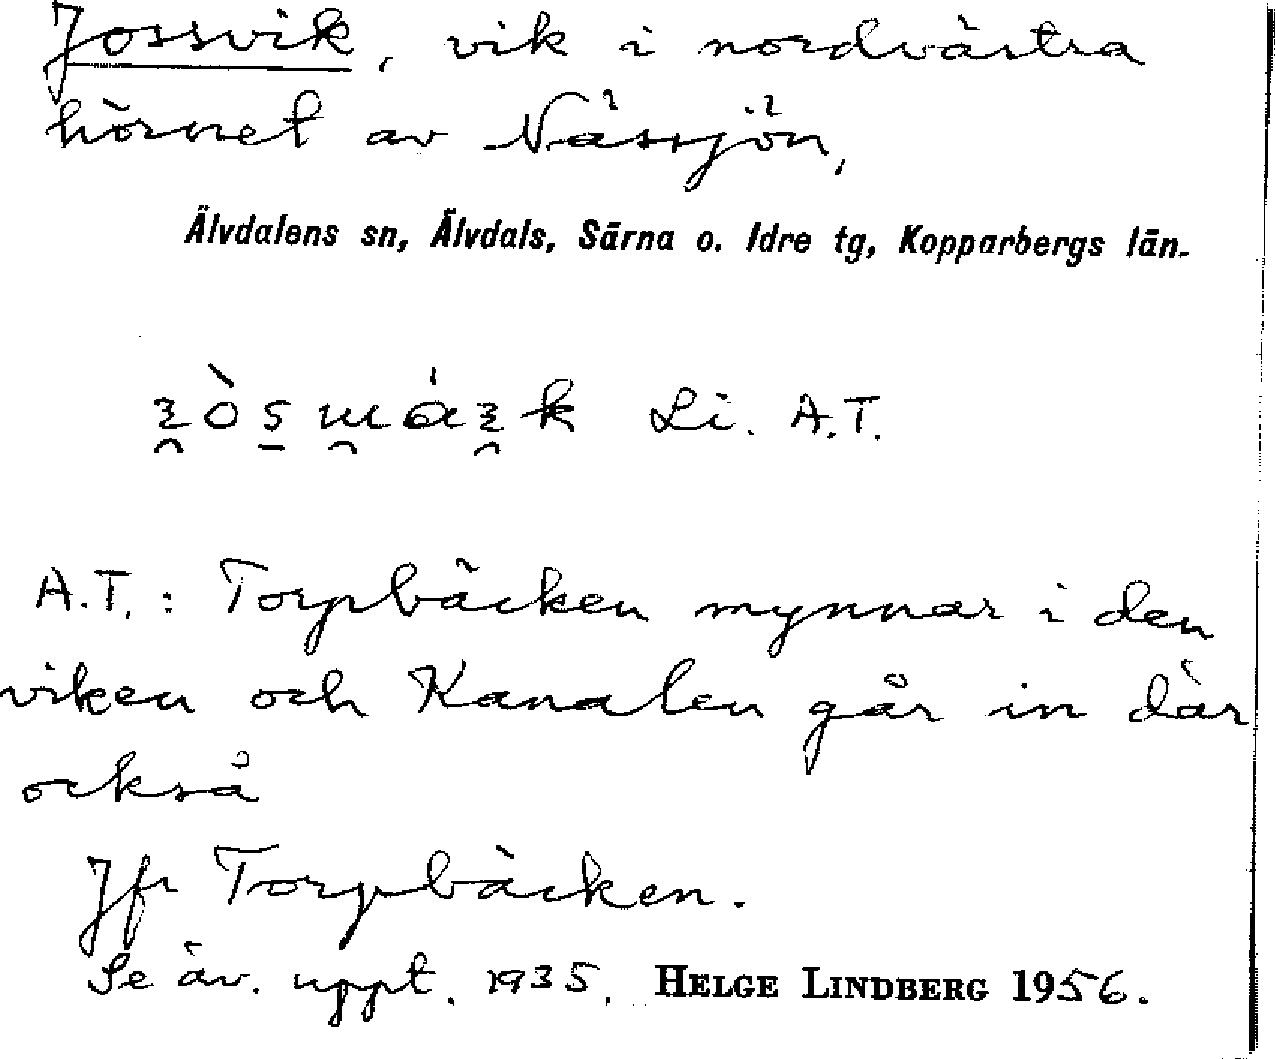 Jossvik, vik i nordvästra
hörnet av Nässjön,
Älvdalens sn, Älvdals, Särna o. Idre tg, Kopparbergs län.
Li. A.T.
A.T.: Torpbäcken mynnar i den
viken och Kanalen går in där
också
Jfr Torpbäcken.
Se äv. uppt. 1935. HELGE LINDBERG 1956.